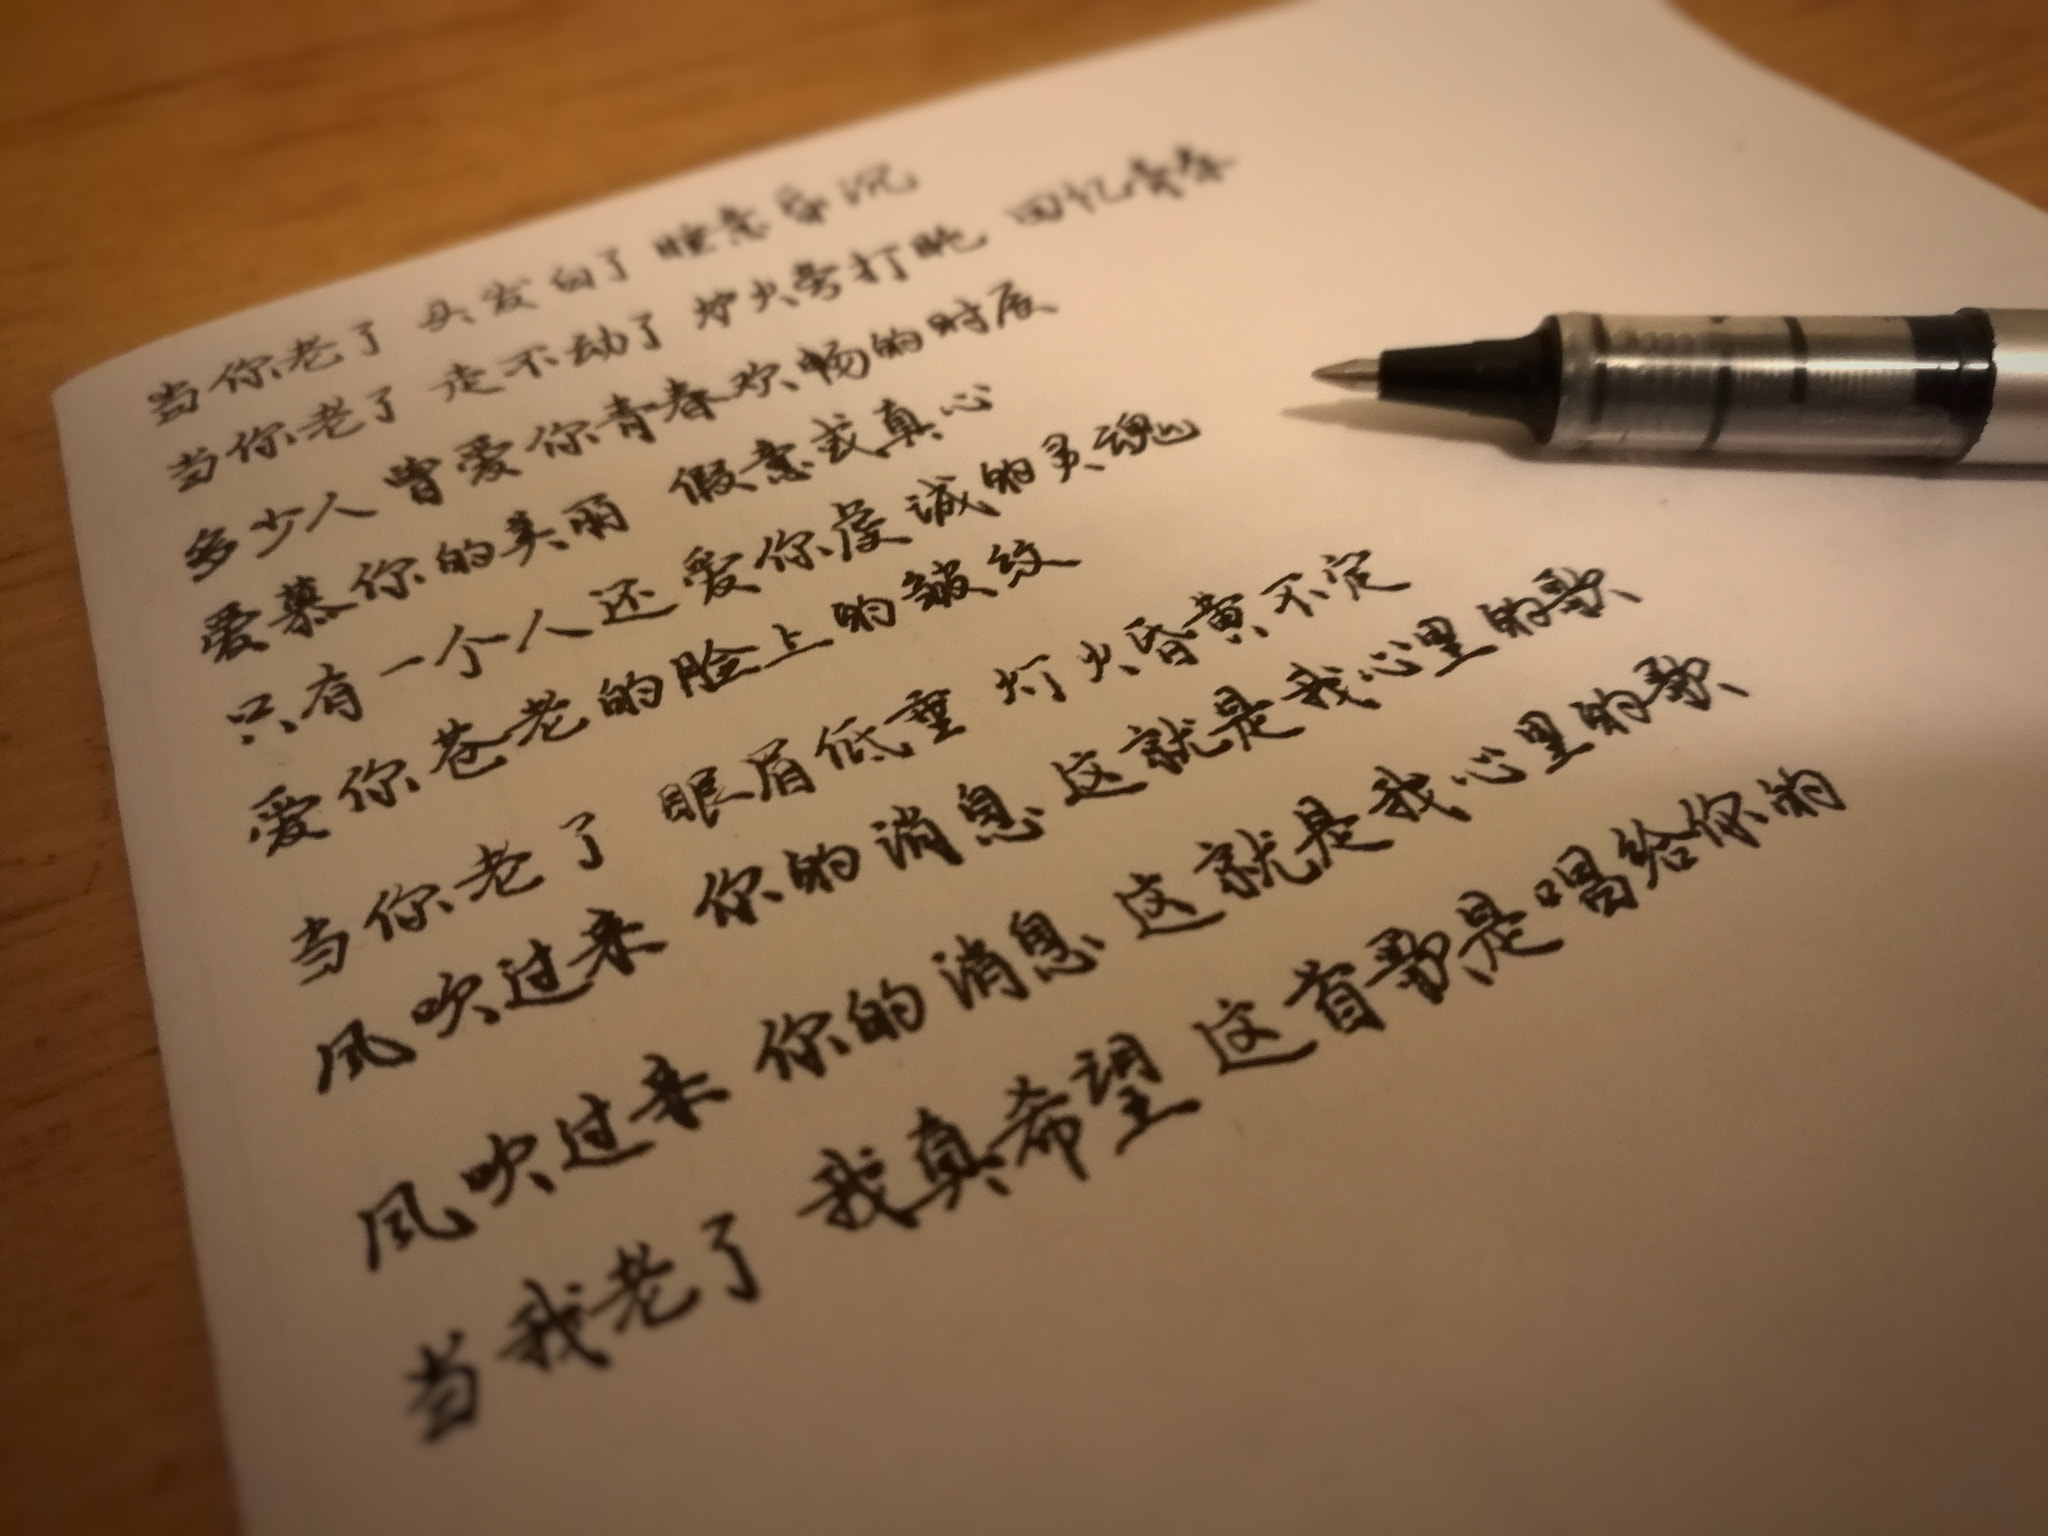 当你老了 头发白了 睡意昏沉
当你老了 走不动了 炉火旁打盹 回忆青春
多少人曾爱你青春欢畅的时辰
爱慕你的美丽 假意或真心
只有一个人还爱你虔诚的灵魂
爱你苍老的脸上的皱纹
当你老了 眼眉低垂 灯火昏黄不定
风吹过来 你的消息 这就是我心里的歌
风吹过来 你的消息 这就是我心里的歌
当我老了 我真希望 这首歌是唱给你的